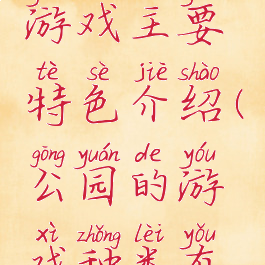 游戏主要
tè sè jiè shào
特色介绍(
gōng yuán de yóu
公园的游
xì zhǒng lèi yǒu
戏种类有